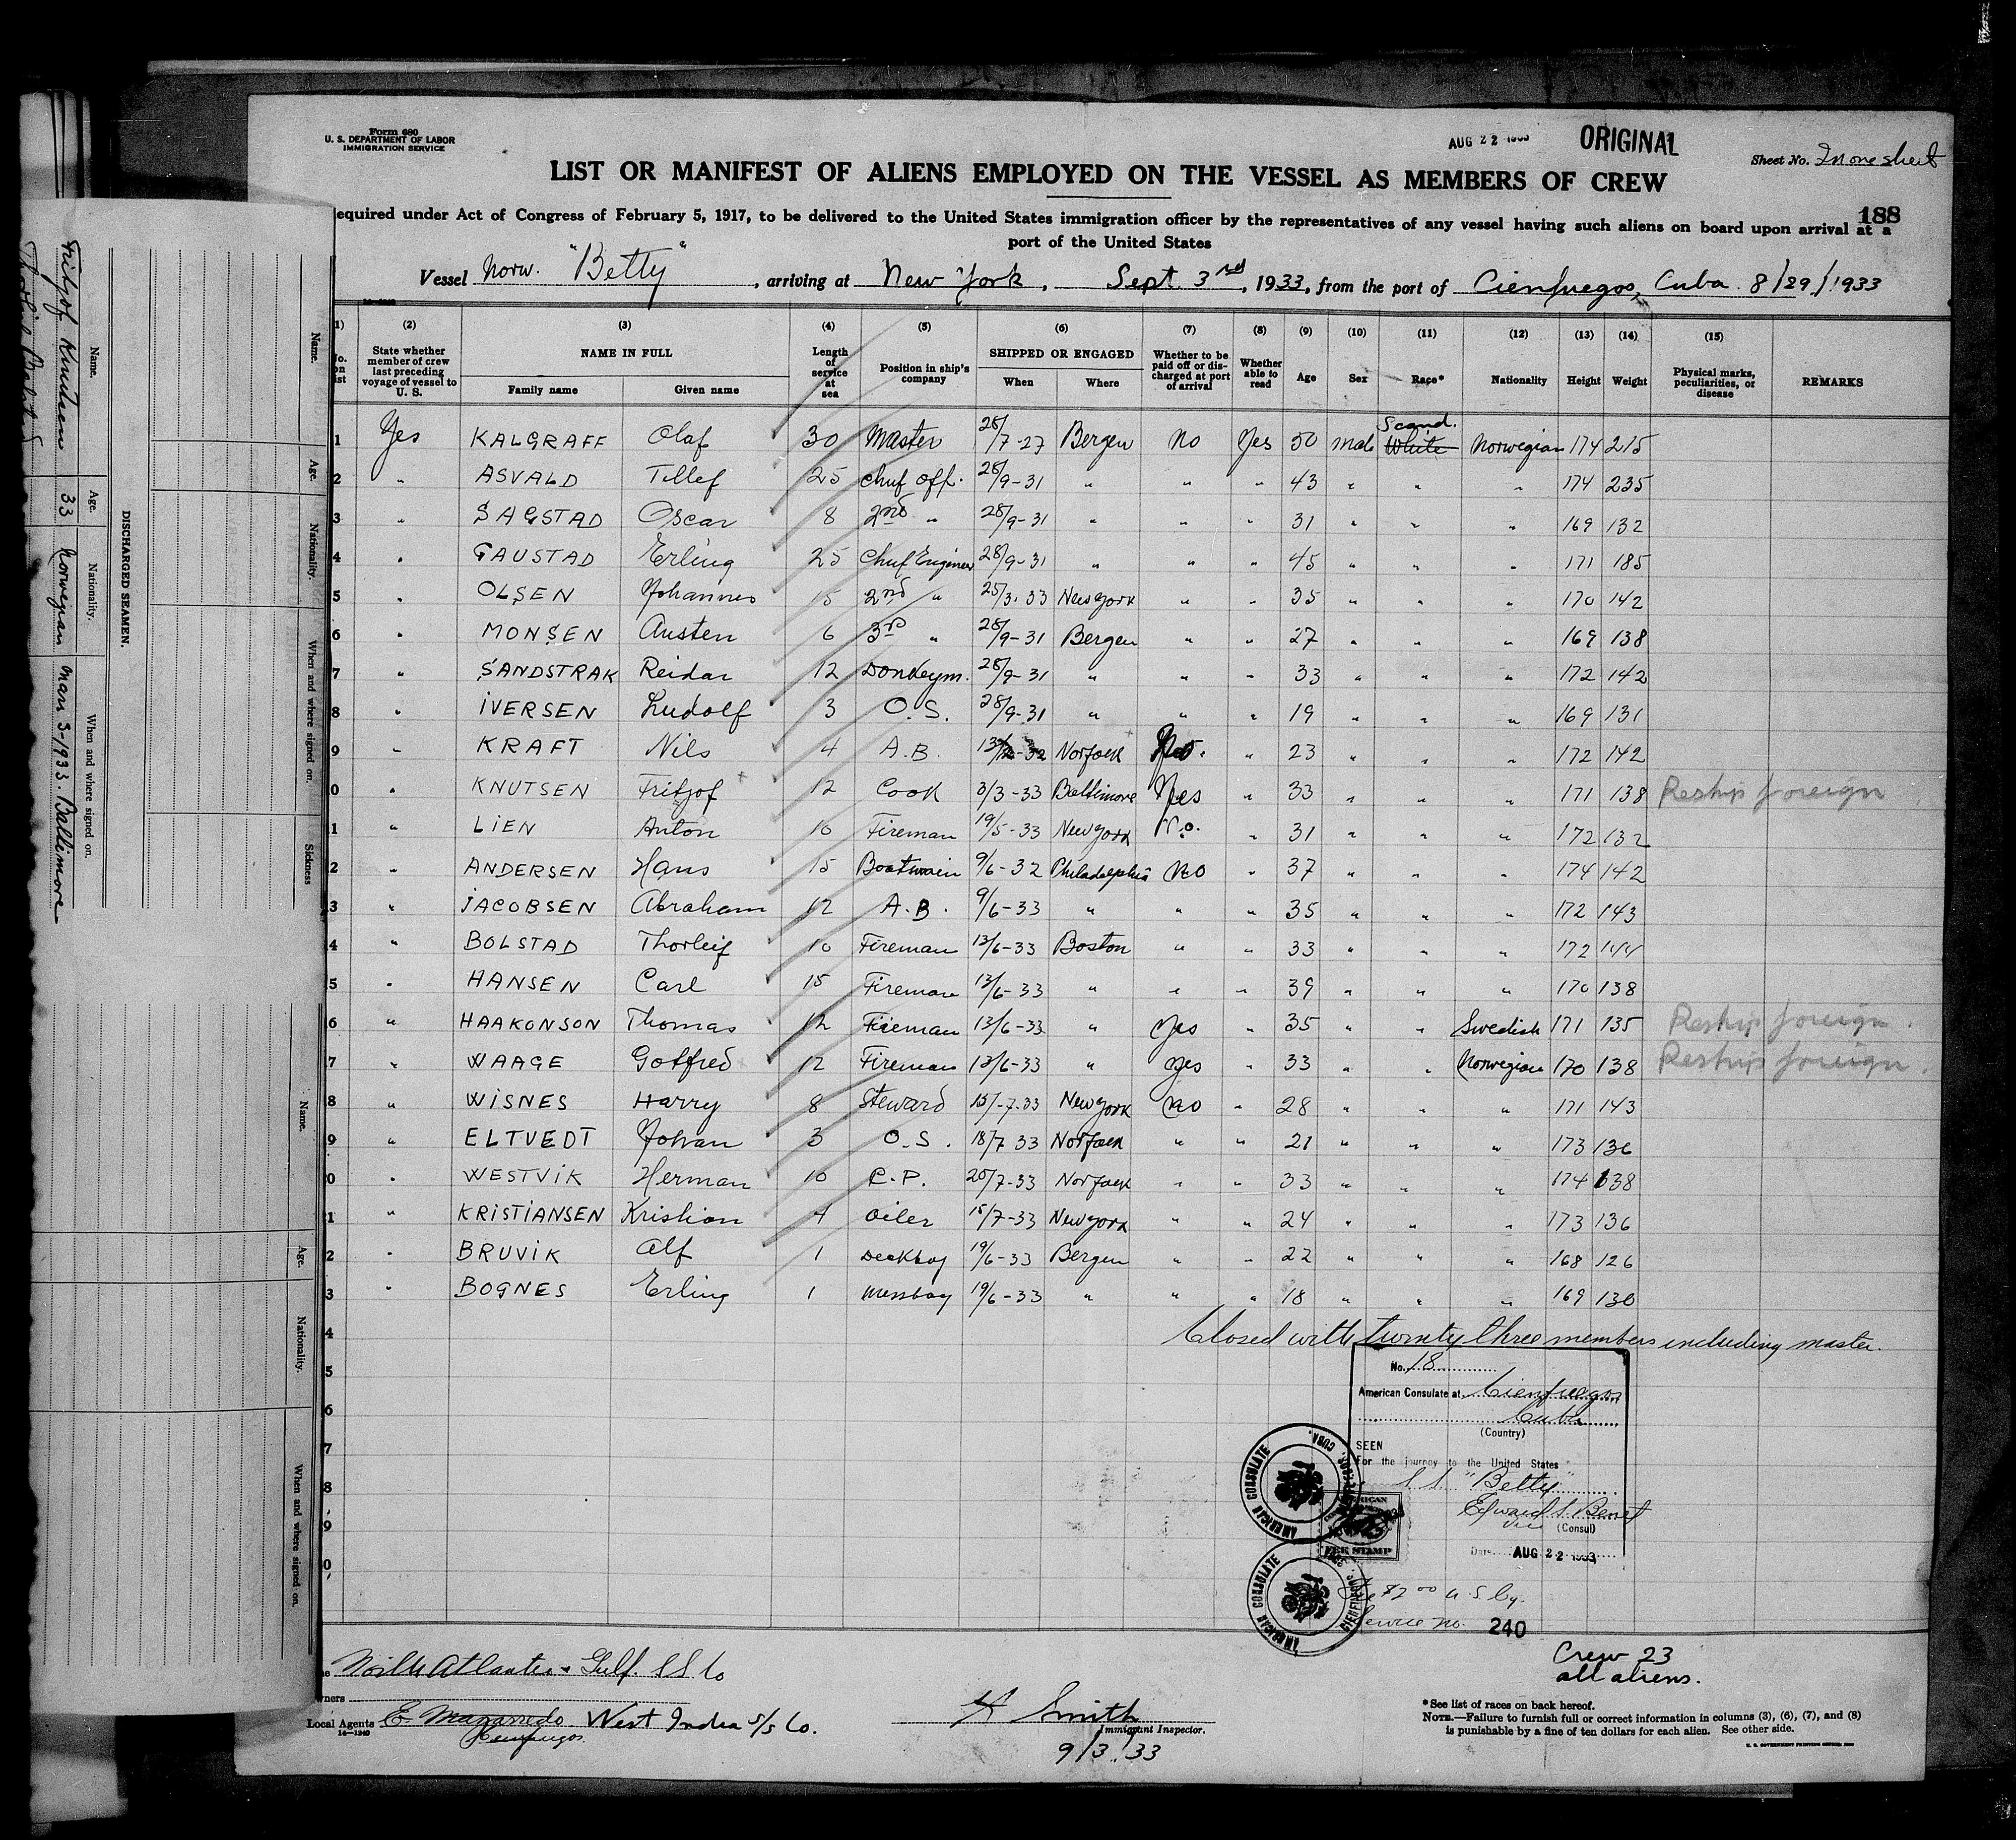 Form 680
U. S. DEPARTMENT OF LABOR
IMMIGRATION SERVICE
AUG 22 1933
ORIGINAL
Sheet No. In one sheet
LIST OR MANIFEST OF ALIENS EMPLOYED ON THE VESSEL AS MEMBERS OF CREW
188
equired under Act of Congress of February 5, 1917, to be delivered to the United States immigration officer by the representatives of any vessel having such aliens on board upon arrival at a
port of the United States
Vessel Norw. "Betty", arriving at New York, Sept. 3rd, 1933, from the port of Cienfuegos, Cuba 8/29/1933
(2) (3) (4) (5) (6) (7) (8) (9) (10) (11) (12) (13) (14) (15)
State whether member of crew last preceding voyage of vessel to U. S. | NAME IN FULL Family name Given name | Length of service at sea | Position in ship's company | SHIPPED OR ENGAGED When Where | Whether to be paid off or discharged at port of arrival | Whether able to read | Age | Sex | Race* | Nationality | Height | Weight | Physical marks, peculiarities, or disease | REMARKS
1 Yes KALGRAFF Olaf 30 Master 28/7-27 Bergen No Yes 50 Male Scand. White Norwegian 174 215
2 " ASVALD Tellef 25 Chief Off. 28/9-31 " " " 43 " " " 174 235
3 " SAGSTAD Oscar 8 2nd " 28/9-31 " " " 31 " " " 169 132
4 " GAUSTAD Erling 25 Chief Engineer 28/9-31 " " " 45 " " " 171 185
5 " OLSEN Johannes 5 2nd " 25/3.33 New York " " 35 " " " 170 142
6 " MONSEN Austen 6 3rd " 28/9-31 Bergen " " 27 " " " 169 138
7 " SANDSTRAK Reidar 12 Donkeym. 28/9-31 " " " 33 " " " 172 142
8 " IVERSEN Ludolf 3 O.S. 28/9-31 " " " 19 " " " 169 131
9 " KRAFT Nils 4 A.B. Norfolk No. " 23 " " " 172 142
0 " KNUTSEN Fritjof 12 Cook 3/3-33 Baltimore Yes " 33 " " " 171 138 Reship foreign
1 " LIEN Anton 10 Fireman 19/5-33 New York No. " 31 " " " 172 132
2 " ANDERSEN Hans 15 Boatswain 9/6-32 Philadelphia No " 37 " " " 174 142
3 " JACOBSEN Abraham 12 A.B. 9/6-33 " " " 35 " " " 172 143
4 " BOLSTAD Thorleif 10 Fireman 13/6-33 Boston " " 33 " " " 172 144
5 " HANSEN Carl 15 Fireman 13/6-33 " " " 39 " " " 170 138
6 " HAAKONSON Thomas 12 Fireman 13/6-33 " Yes " 35 " " Swedish 171 135 Reship foreign.
7 " WAAGE Gotfred 12 Fireman 13/6-33 " Yes " 33 " " Norwegian 170 138 Reship foreign.
8 " WISNES Harry 8 Steward 15/-7.33 New York No " 28 " " " 171 143
9 " ELTVEDT Johan 3 O.S. 18/7 33 Norfolk " " 21 " " " 173 136
0 " WESTVIK Herman 10 C.P. 20/7-33 Norfolk " " 33 " " " 174 138
1 " KRISTIANSEN Kristian 4 Oiler 15/7-33 New York " " 24 " " " 173 136
2 " BRUVIK Alf 1 Deckboy 19/6-33 Bergen " " 22 " " " 168 126
3 " BOGNES Erling 1 Messboy 19/6-33 " " " 18 " " " 169 130
4 Closed with twenty three members including master.
5
6
7
8
9
0
No. 18
American Consulate at Cienfuegos
Cuba
(Country)
SEEN
For the journey to the United States
S.S. "Betty"
Edward S. Benet
Vice (Consul)
Date AUG 22 1933
AMERICAN CONSULATE CIENFUEGOS, CUBA.
FEE STAMP
AMERICAN CONSULATE CIENFUEGOS, CUBA.
Fee $2.00 U S Cy.
Service No. 240
Crew 23
all aliens.
North Atlantic & Gulf. SS Co
ners
Local Agents E West India S/S Co.
Cienfuegos
14—1240
Smith
Immigrant Inspector.
9/3/33
*See list of races on back hereof.
NOTE.—Failure to furnish full or correct information in columns (3), (6), (7), and (8)
is punishable by a fine of ten dollars for each alien. See other side.
U. S. GOVERNMENT PRINTING OFFICE
DISCHARGED SEAMEN.
Name. Age. Nationality. When and where signed on.
Fritjof Knutsen 33 Norwegian Mars 3-1933. Baltimore
Thorleif Bolstad
Name. Age. Nationality. When and where signed on. Sickness
Name. Age. Nationality. When and where signed on.